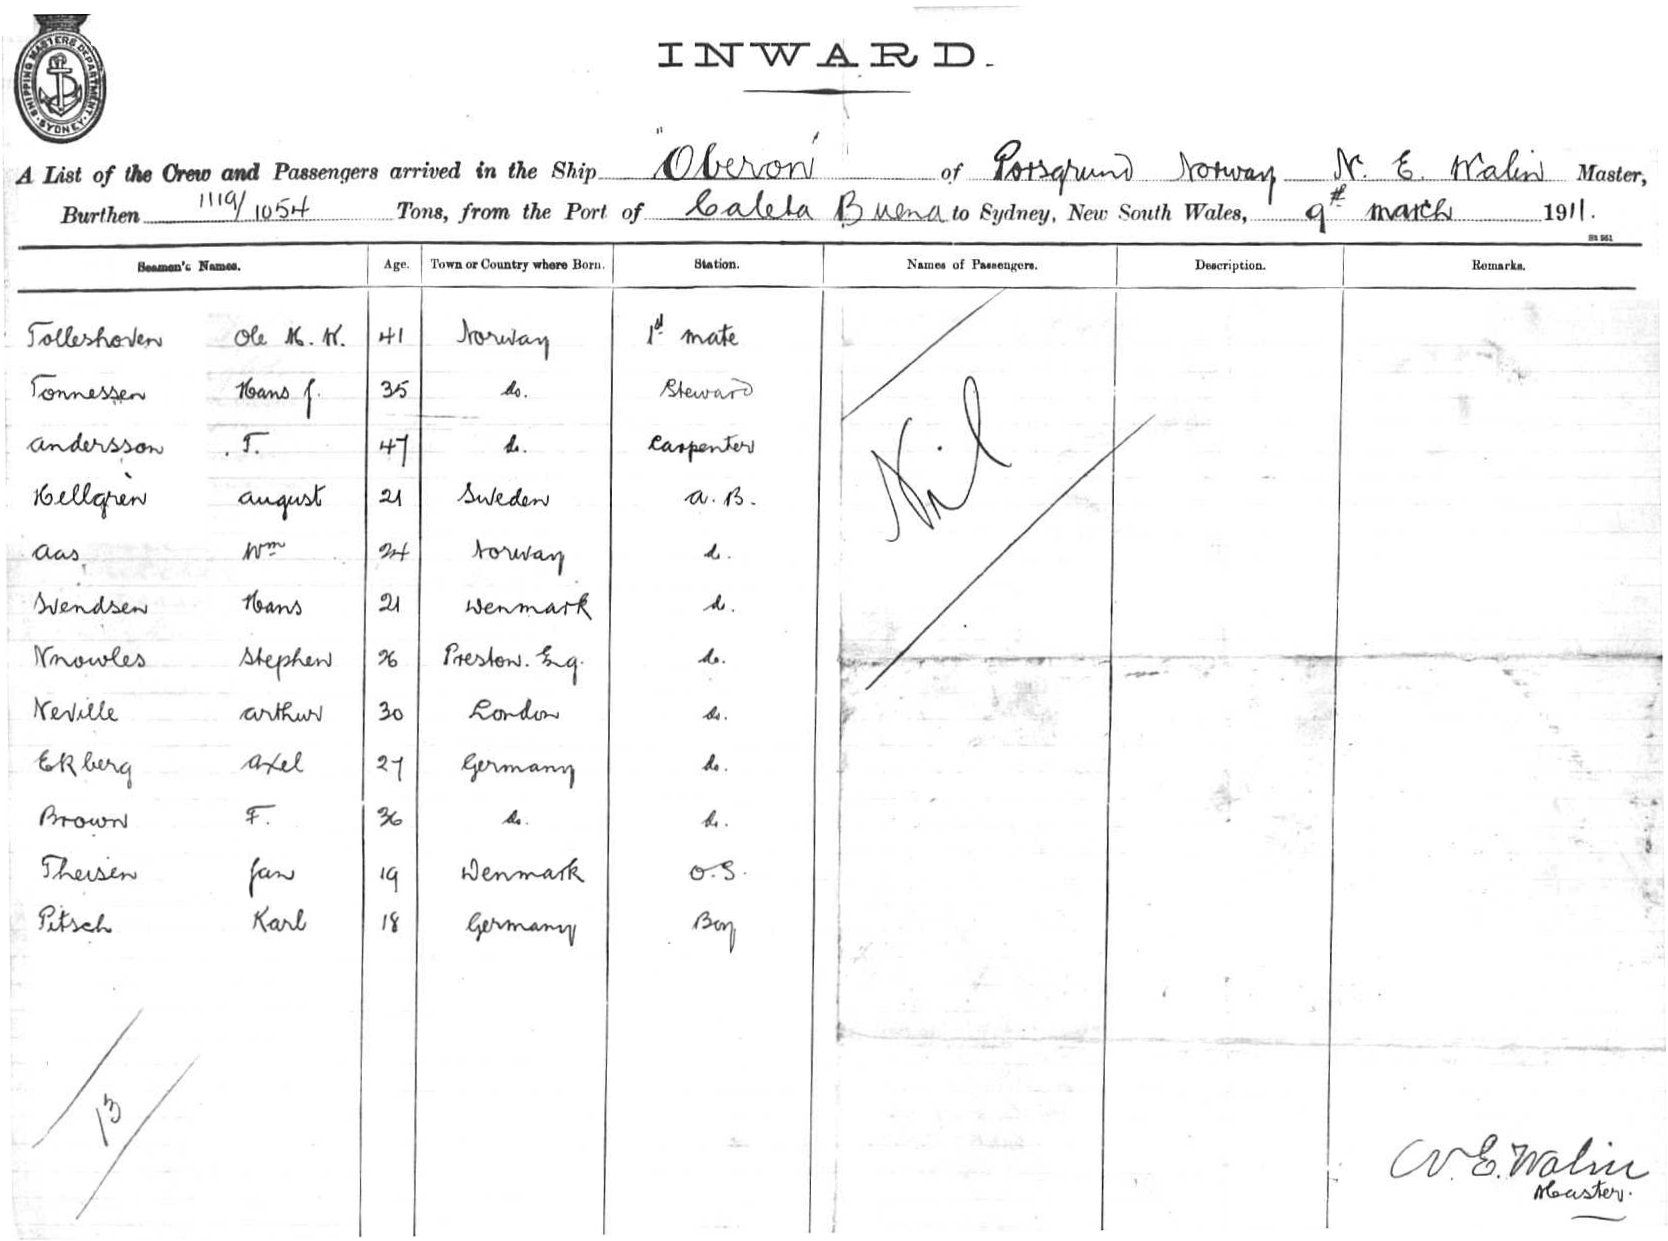 SHIPPING MASTERS DEPARTMENT. SYDNEY.
INWARD.
A List of the Crew and Passengers arrived in the Ship "Oberon" of Porsgrund Norway N. E. Walin Master,
Burthen 1119/1054 Tons, from the Port of Caleta Buena to Sydney, New South Wales, 9th March 1911.
Seamen's Names. Age. Town or Country where Born. Station. Names of Passengers. Description. Remarks.
Tolleshoven Ole M. K. 41 Norway 1st mate
Tonnessen Hans J. 35 do. Steward
Andersson F. 47 do. Carpenter
Hellgren August 21 Sweden A. B.
Aas Wm 24 Norway do.
Svendsen Hans 21 Denmark do.
Knowles Stephen 26 Preston. Eng. do.
Neville Arthur 30 London do.
Ekberg Axel 27 Germany do.
Brown F. 36 do. do.
Theisen Jan 19 Denmark O.S.
Pitsch Karl 18 Germany Boy
Nil
13
N. E. Walin
Master.